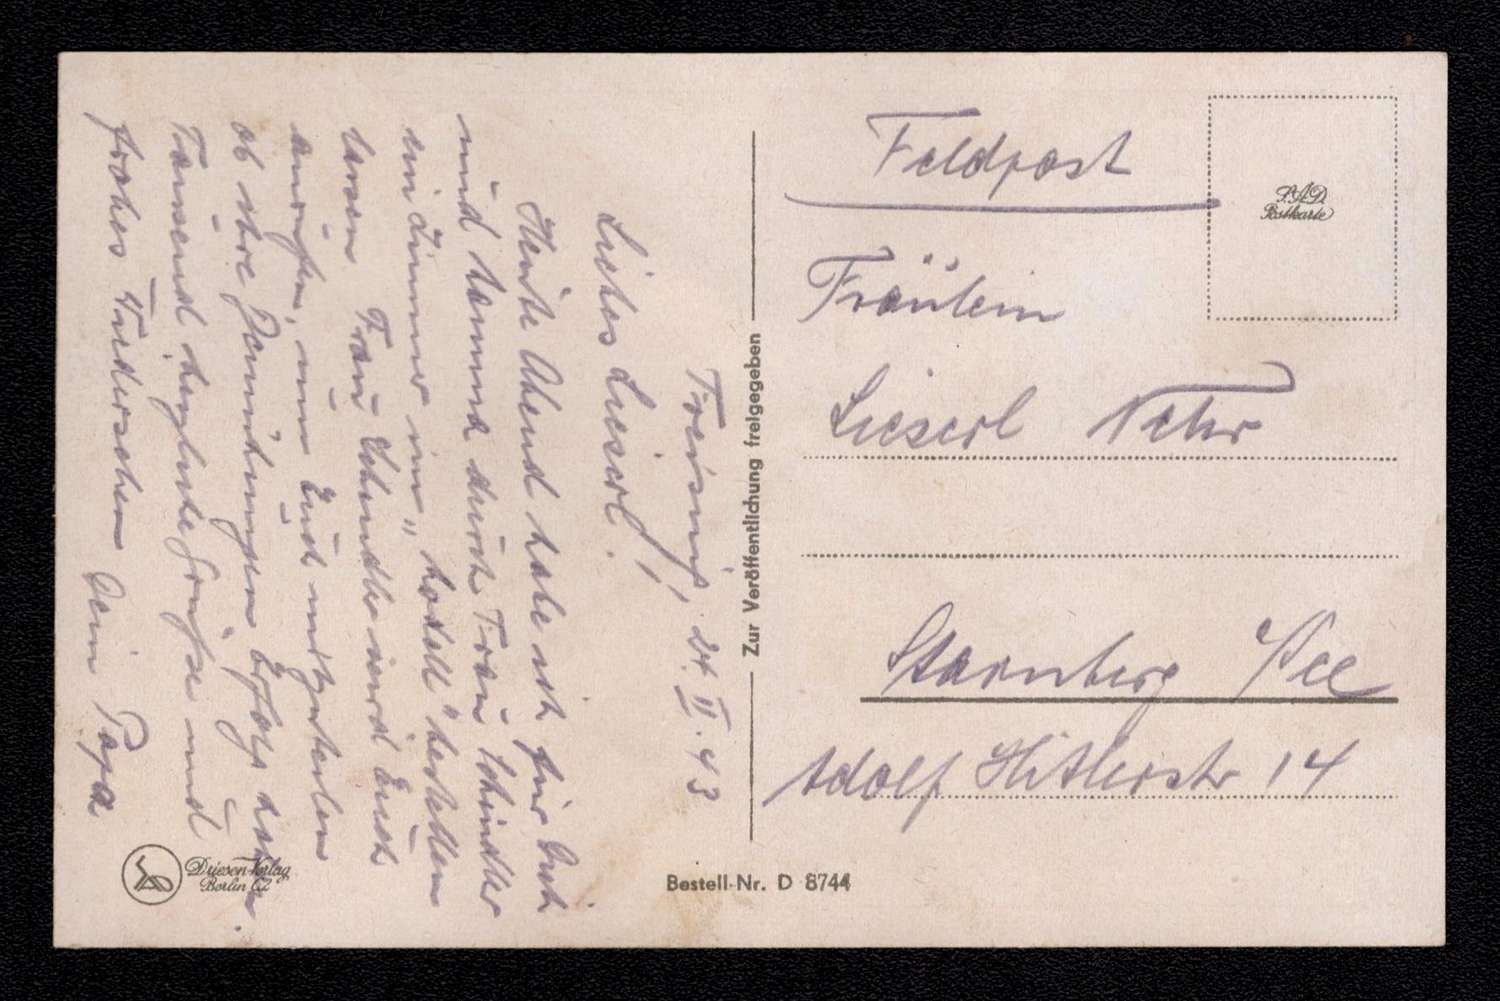 Freising, 24. II. 43
Liebes Lieserl!
Heute Abend habe ich für Euch
und Hanna durch Frau Schindler
ein Zimmer im „Hotel" bestellen
lassen. Frau Schindler wird Euch
anrufen, um Euch mitzuteilen
ob ihre Bemühungen Erfolg
Tausend herzliche Grüße und
frohes Wiedersehen Dein Papa
Driesen-Verlag
Berlin C2
Bestell-Nr. D 8744
Zur Veröffentlichung freigegeben
Feldpost
S.A.D.
Postkarte
Fräulein
Lieserl
Starnberg /See
Adolf Hitlerstr 14